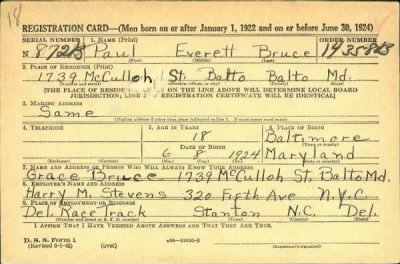 18
REGISTRATION CARD—(Men born on or after January 1, 1922 and on or before June 30, 1924)
SERIAL NUMBER 1. NAME (Print) ORDER NUMBER
Paul Everett Bruce
(First) (Middle) (Last)
2. PLACE OF RESIDENCE (Print)
1739 McCulloh St. Balto Balto Md.
[THE PLACE OF RESIDENCE ON THE LINE ABOVE WILL DETERMINE LOCAL BOARD
JURISDICTION; LINE 2 OF REGISTRATION CERTIFICATE WILL BE IDENTICAL]
3. MAILING ADDRESS
Same
4. TELEPHONE 5. AGE IN YEARS 6. PLACE OF BIRTH
18 Baltimore
DATE OF BIRTH
6 8 1924 Maryland
7. NAME AND ADDRESS OF PERSON WHO WILL ALWAYS KNOW YOUR ADDRESS
Grace Bruce 1739 McCulloh St. Balto Md.
8. EMPLOYER'S NAME AND ADDRESS
Harry M. Stevens 320 Fifth Ave N.Y.C
9. PLACE OF EMPLOYMENT OR BUSINESS
Del. Race Track Stanton N.C. Del.
I AFFIRM THAT I HAVE VERIFIED ABOVE ANSWERS AND THAT THEY ARE TRUE.
D. S. S. Form 1